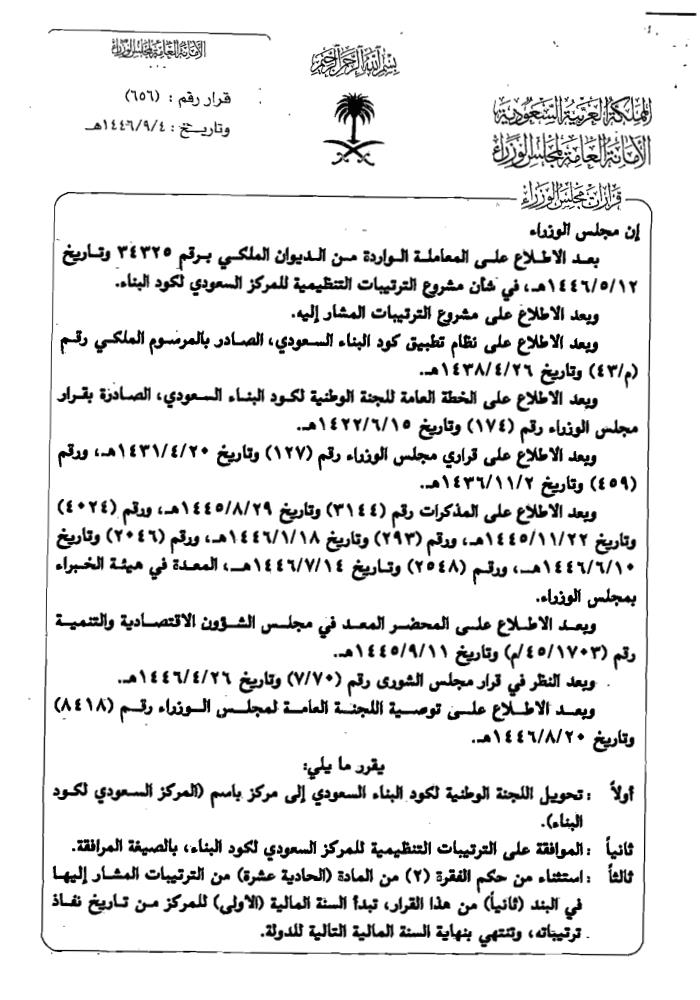 الأمانة العامة لمجلس الوزراء
بسم الله الرحمن الرحيم
قرار رقم : (٦٥٦)
وتاريخ : ١٤٤٦/٩/٤هـ
المملكة العربية السعودية
الأمانة العامة لمجلس الوزراء
قرارات مجلس الوزراء
إن مجلس الوزراء
بعد الاطلاع على المعاملة الواردة من الديوان الملكي برقم ٣٤٣٢٥ وتاريخ
١٤٤٦/٥/١٢هـ، في شأن مشروع الترتيبات التنظيمية للمركز السعودي لكود البناء.
وبعد الاطلاع على مشروع الترتيبات المشار إليه.
وبعد الاطلاع على نظام تطبيق كود البناء السعودي، الصادر بالمرسوم الملكي رقم
(م/٤٣) وتاريخ ١٤٣٨/٤/٢٦هـ.
وبعد الاطلاع على الخطة العامة للجنة الوطنية لكود البناء السعودي، الصادرة بقرار
مجلس الوزراء رقم (١٧٤) وتاريخ ١٤٢٢/٦/١٥هـ.
وبعد الاطلاع على قراري مجلس الوزراء رقم (١٢٧) وتاريخ ١٤٣١/٤/٢٠هـ، ورقم
(٤٥٩) وتاريخ ١٤٣٦/١١/٢هـ.
وبعد الاطلاع على المذكرات رقم (٣١٤٤) وتاريخ ١٤٤٥/٨/٢٩هـ، ورقم (٤٠٢٤)
وتاريخ ١٤٤٥/١١/٢٢هـ، ورقم (٢٩٣) وتاريخ ١٤٤٦/١/١٨هـ، ورقم (٢٠٤٦) وتاريخ
١٤٤٦/٦/١٠هـ، ورقم (٢٥٤٨) وتاريخ ١٤٤٦/٧/١٤هـ، المعدة في هيئة الخبراء
بمجلس الوزراء.
وبعد الاطلاع على المحضر المعد في مجلس الشؤون الاقتصادية والتنمية
رقم (٤٥/١٧٠٣/م) وتاريخ ١٤٤٥/٩/١١هـ.
وبعد النظر في قرار مجلس الشورى رقم (٧/٧٠) وتاريخ ١٤٤٦/٤/٢٦هـ.
وبعد الاطلاع على توصية اللجنة العامة لمجلس الوزراء رقم (٨٤١٨)
وتاريخ ١٤٤٦/٨/٢٠هـ.
يقرر ما يلي:
أولاً : تحويل اللجنة الوطنية لكود البناء السعودي إلى مركز باسم (المركز السعودي لكود
البناء).
ثانياً : الموافقة على الترتيبات التنظيمية للمركز السعودي لكود البناء، بالصيغة المرافقة.
ثالثاً : استثناء من حكم الفقرة (٢) من المادة (الحادية عشرة) من الترتيبات المشار إليها
في البند (ثانياً) من هذا القرار، تبدأ السنة المالية (الأولى) للمركز من تاريخ نفاذ
ترتيباته، وتنتهي بنهاية السنة المالية التالية للدولة.